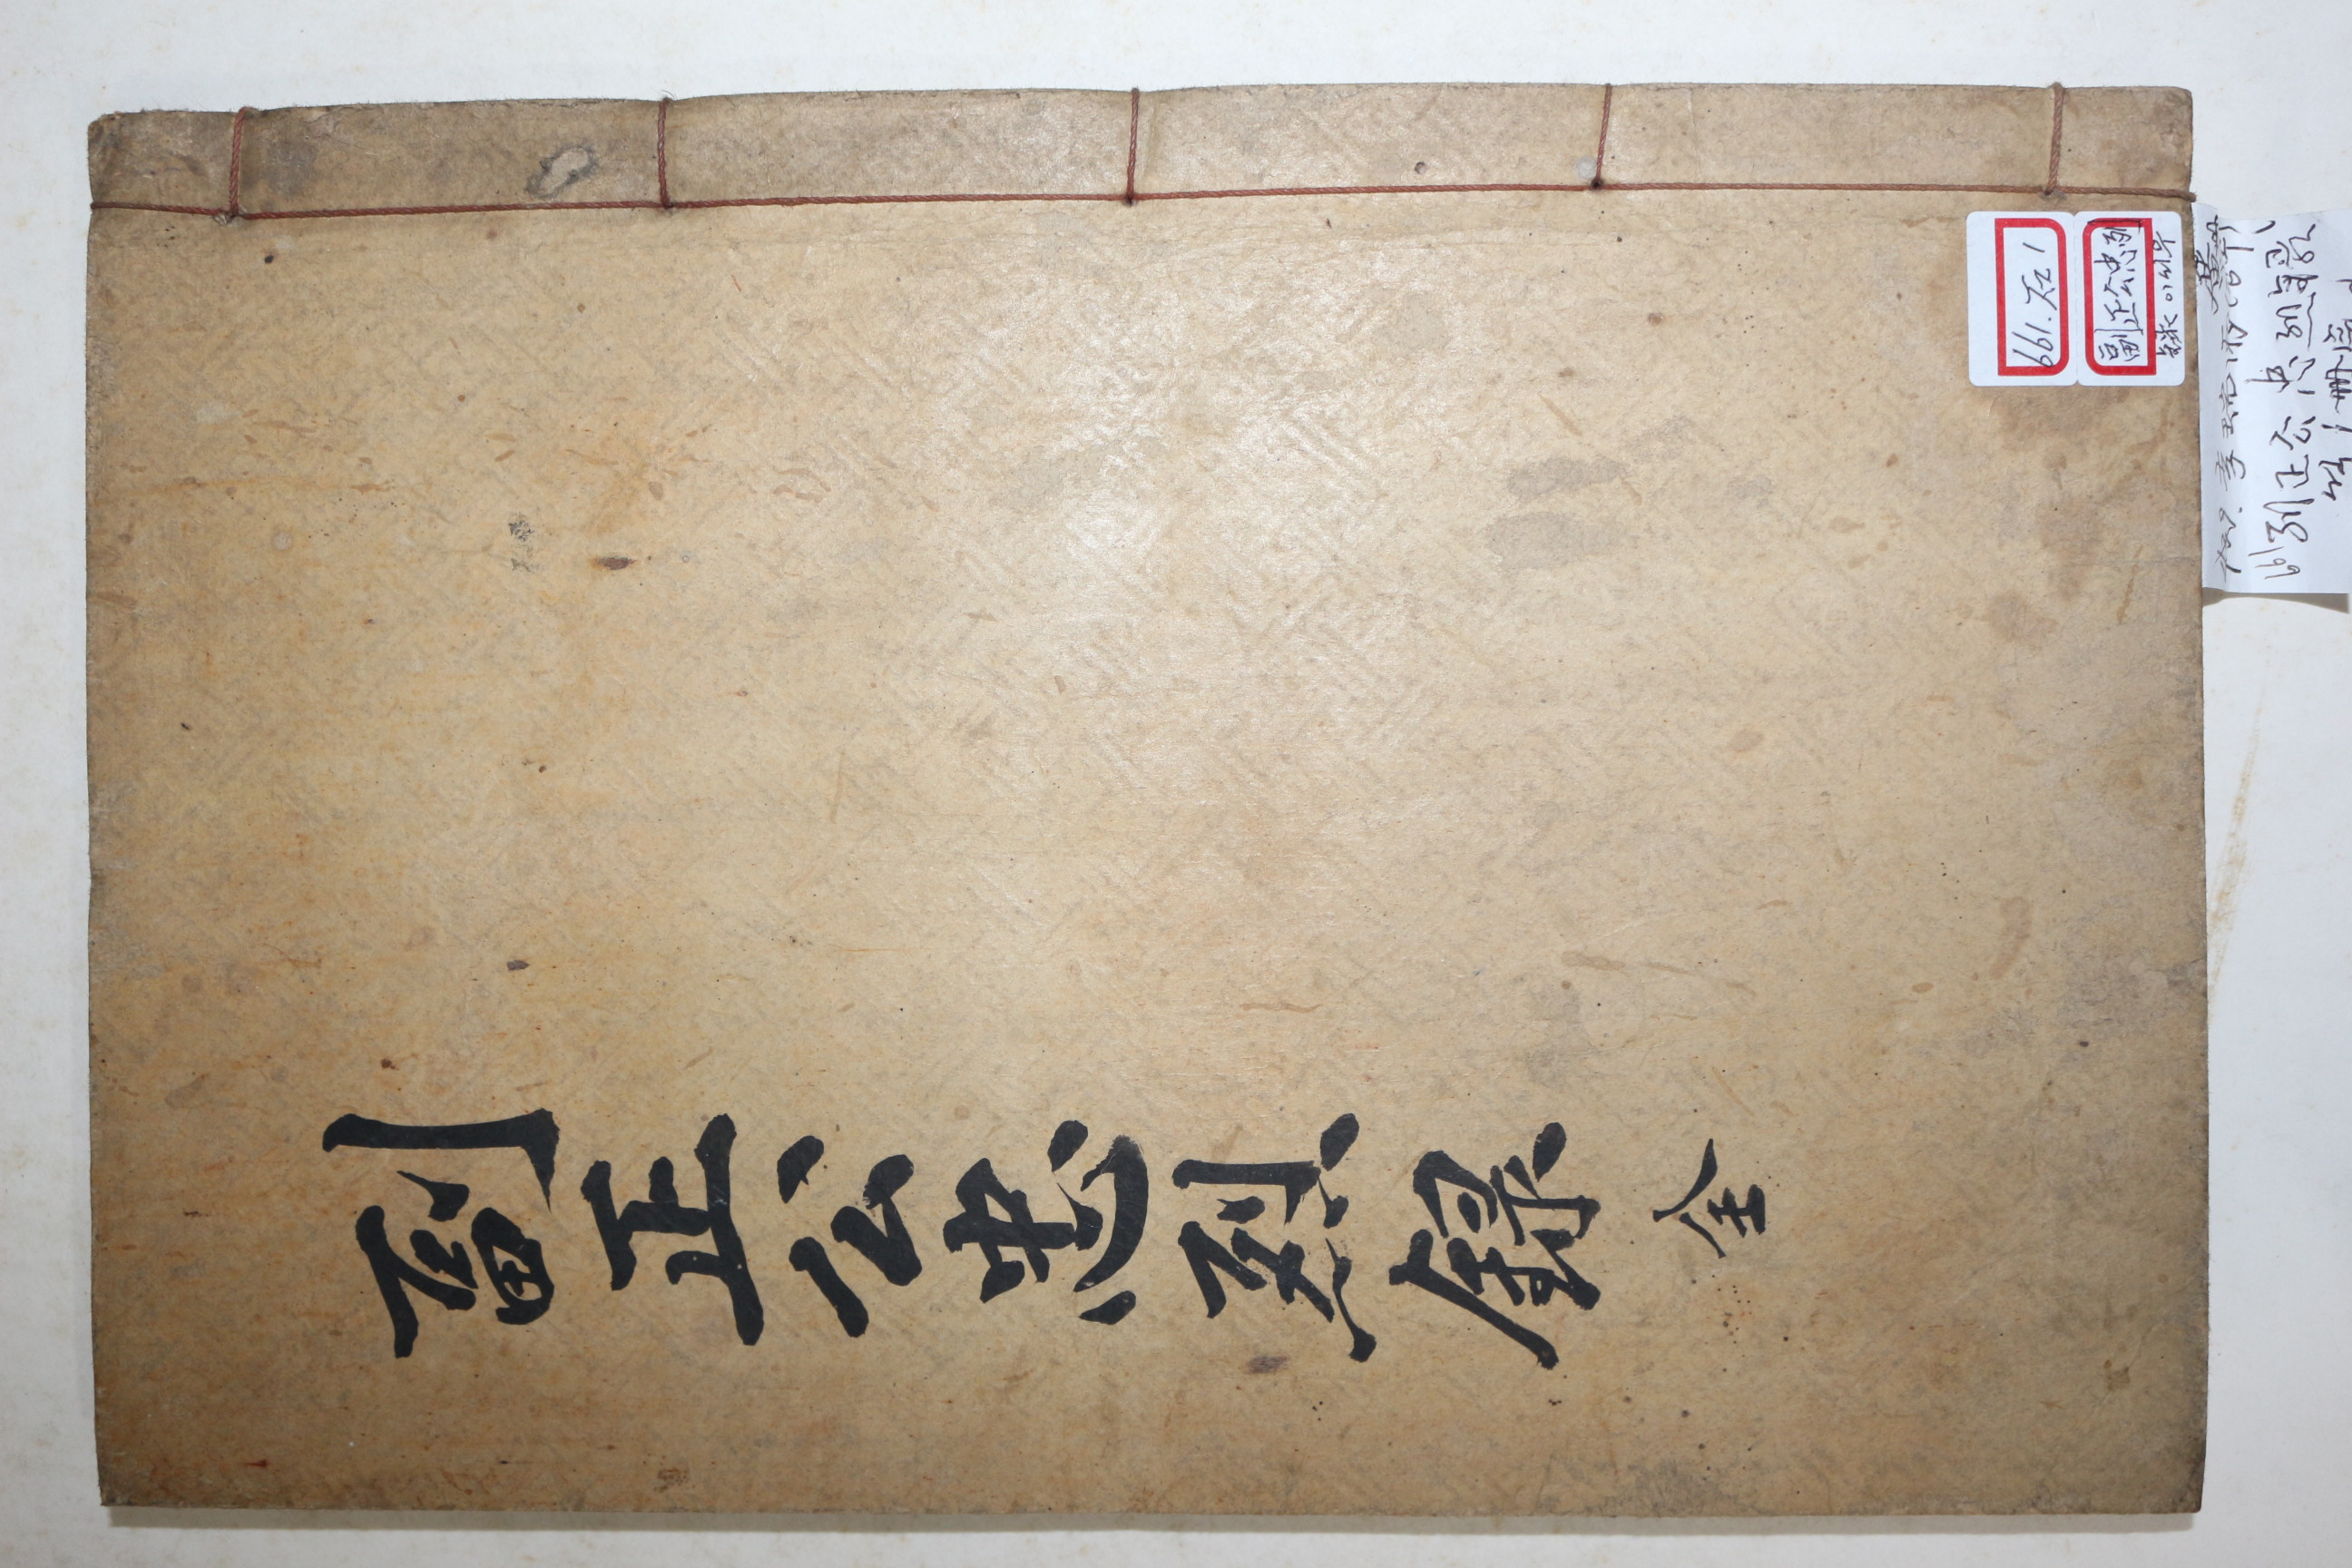 副正公忠烈錄 全
661. 조 1
副正公忠烈
錄 이서우
661 副正公忠烈錄